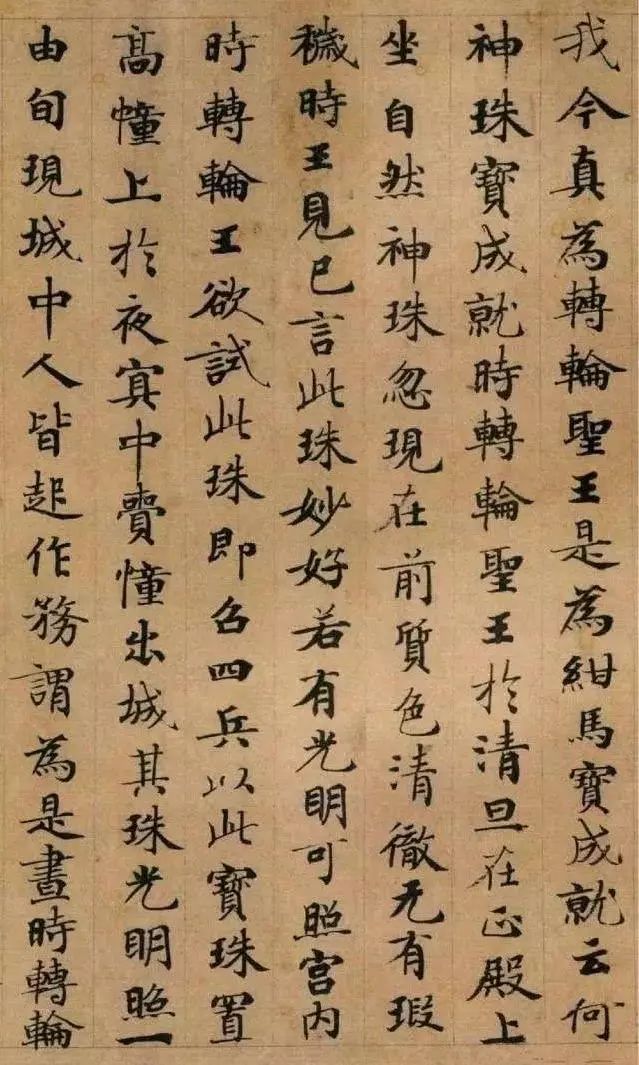 我今真為轉輪聖王是為紺馬寶成就云何
神珠寶成就時轉輪聖王於清旦在正殿上
坐自然神珠忽現在前質色清徹无有瑕
穢時王見已言此珠妙好若有光明可照宮内
時轉輪王欲試此珠即召四兵以此寶珠置
高幢上於夜㝠中賷幢出城其珠光明照一
由旬現城中人皆起作務謂為是晝時轉輪